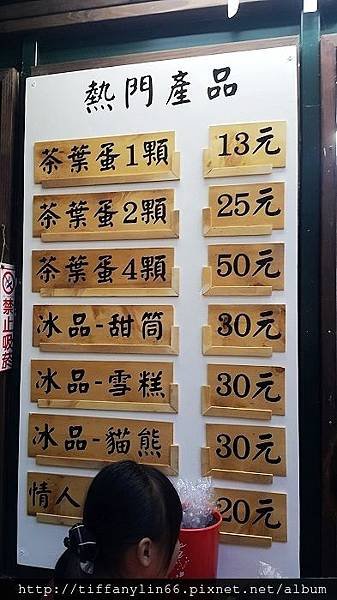 熱門產品
茶葉蛋1顆 13元
茶葉蛋2顆 25元
茶葉蛋4顆 50元
冰品-甜筒 30元
冰品-雪糕 30元
冰品-貓熊 30元
情人 20元
禁止吸菸
http://tiffanylin66.pixnet.net/album